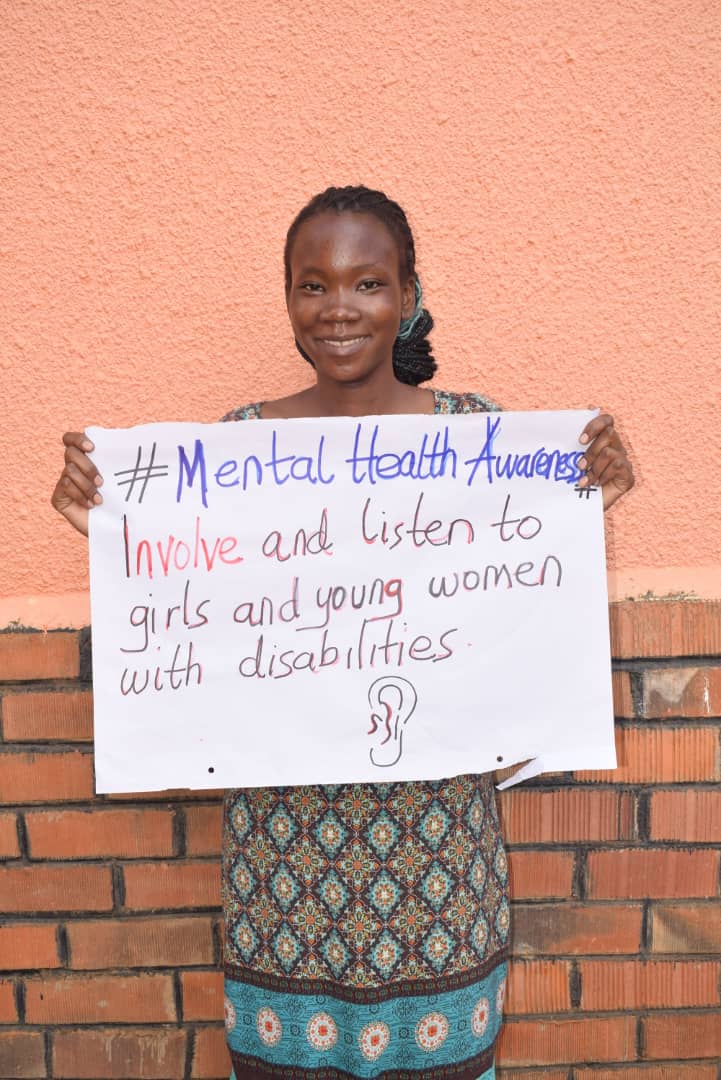 # Mental Health Awareness #
Involve and listen to
girls and young women
with disabilities.